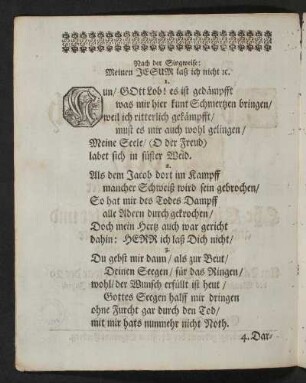 Nach der Singweise:
Meinen JESUM laß ich nicht ꝛc.
1.
Nun/ GOtt Lob! es ist gedämpfft
was mir hier kunt Schmertzen bringen/
weil ich ritterlich gekämpfft/
must es mir auch wohl gelingen/
Meine Seele/ (O der Freud)
labet sich in süsser Weid.
2.
Als dem Jacob dort im Kampff
mancher Schweiß wird sein gebrochen/
So hat mir des Todes Dampff
alle Adern durchgekrochen/
Doch mein Hertz auch war gericht
dahin: HERR ich laß Dich nicht/
3.
Du gebst mir dann/ als zur Beut/
Deinen Seegen/ für das Ringen/
wohl/ der Wunsch erfüllt ist heut/
Gottes Seegen halff mir dringen
ohne Furcht gar durch den Tod/
mit mir hats nunmehr nicht Noth.
4. Dar-